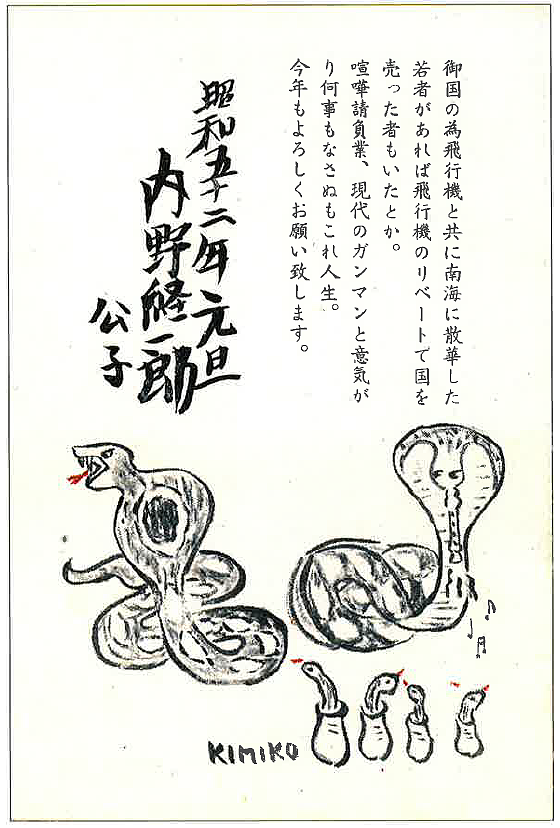 御国の為飛行機と共に南海に散華した
若者があれば飛行機のリベートで国を
売った者もいたとか。
喧嘩請負業、現代のガンマンと意気が
り何事もなさぬもこれ人生。
今年もよろしくお願い致します。
昭和五十二年元旦
内野経一郎
公子
KIMIKO